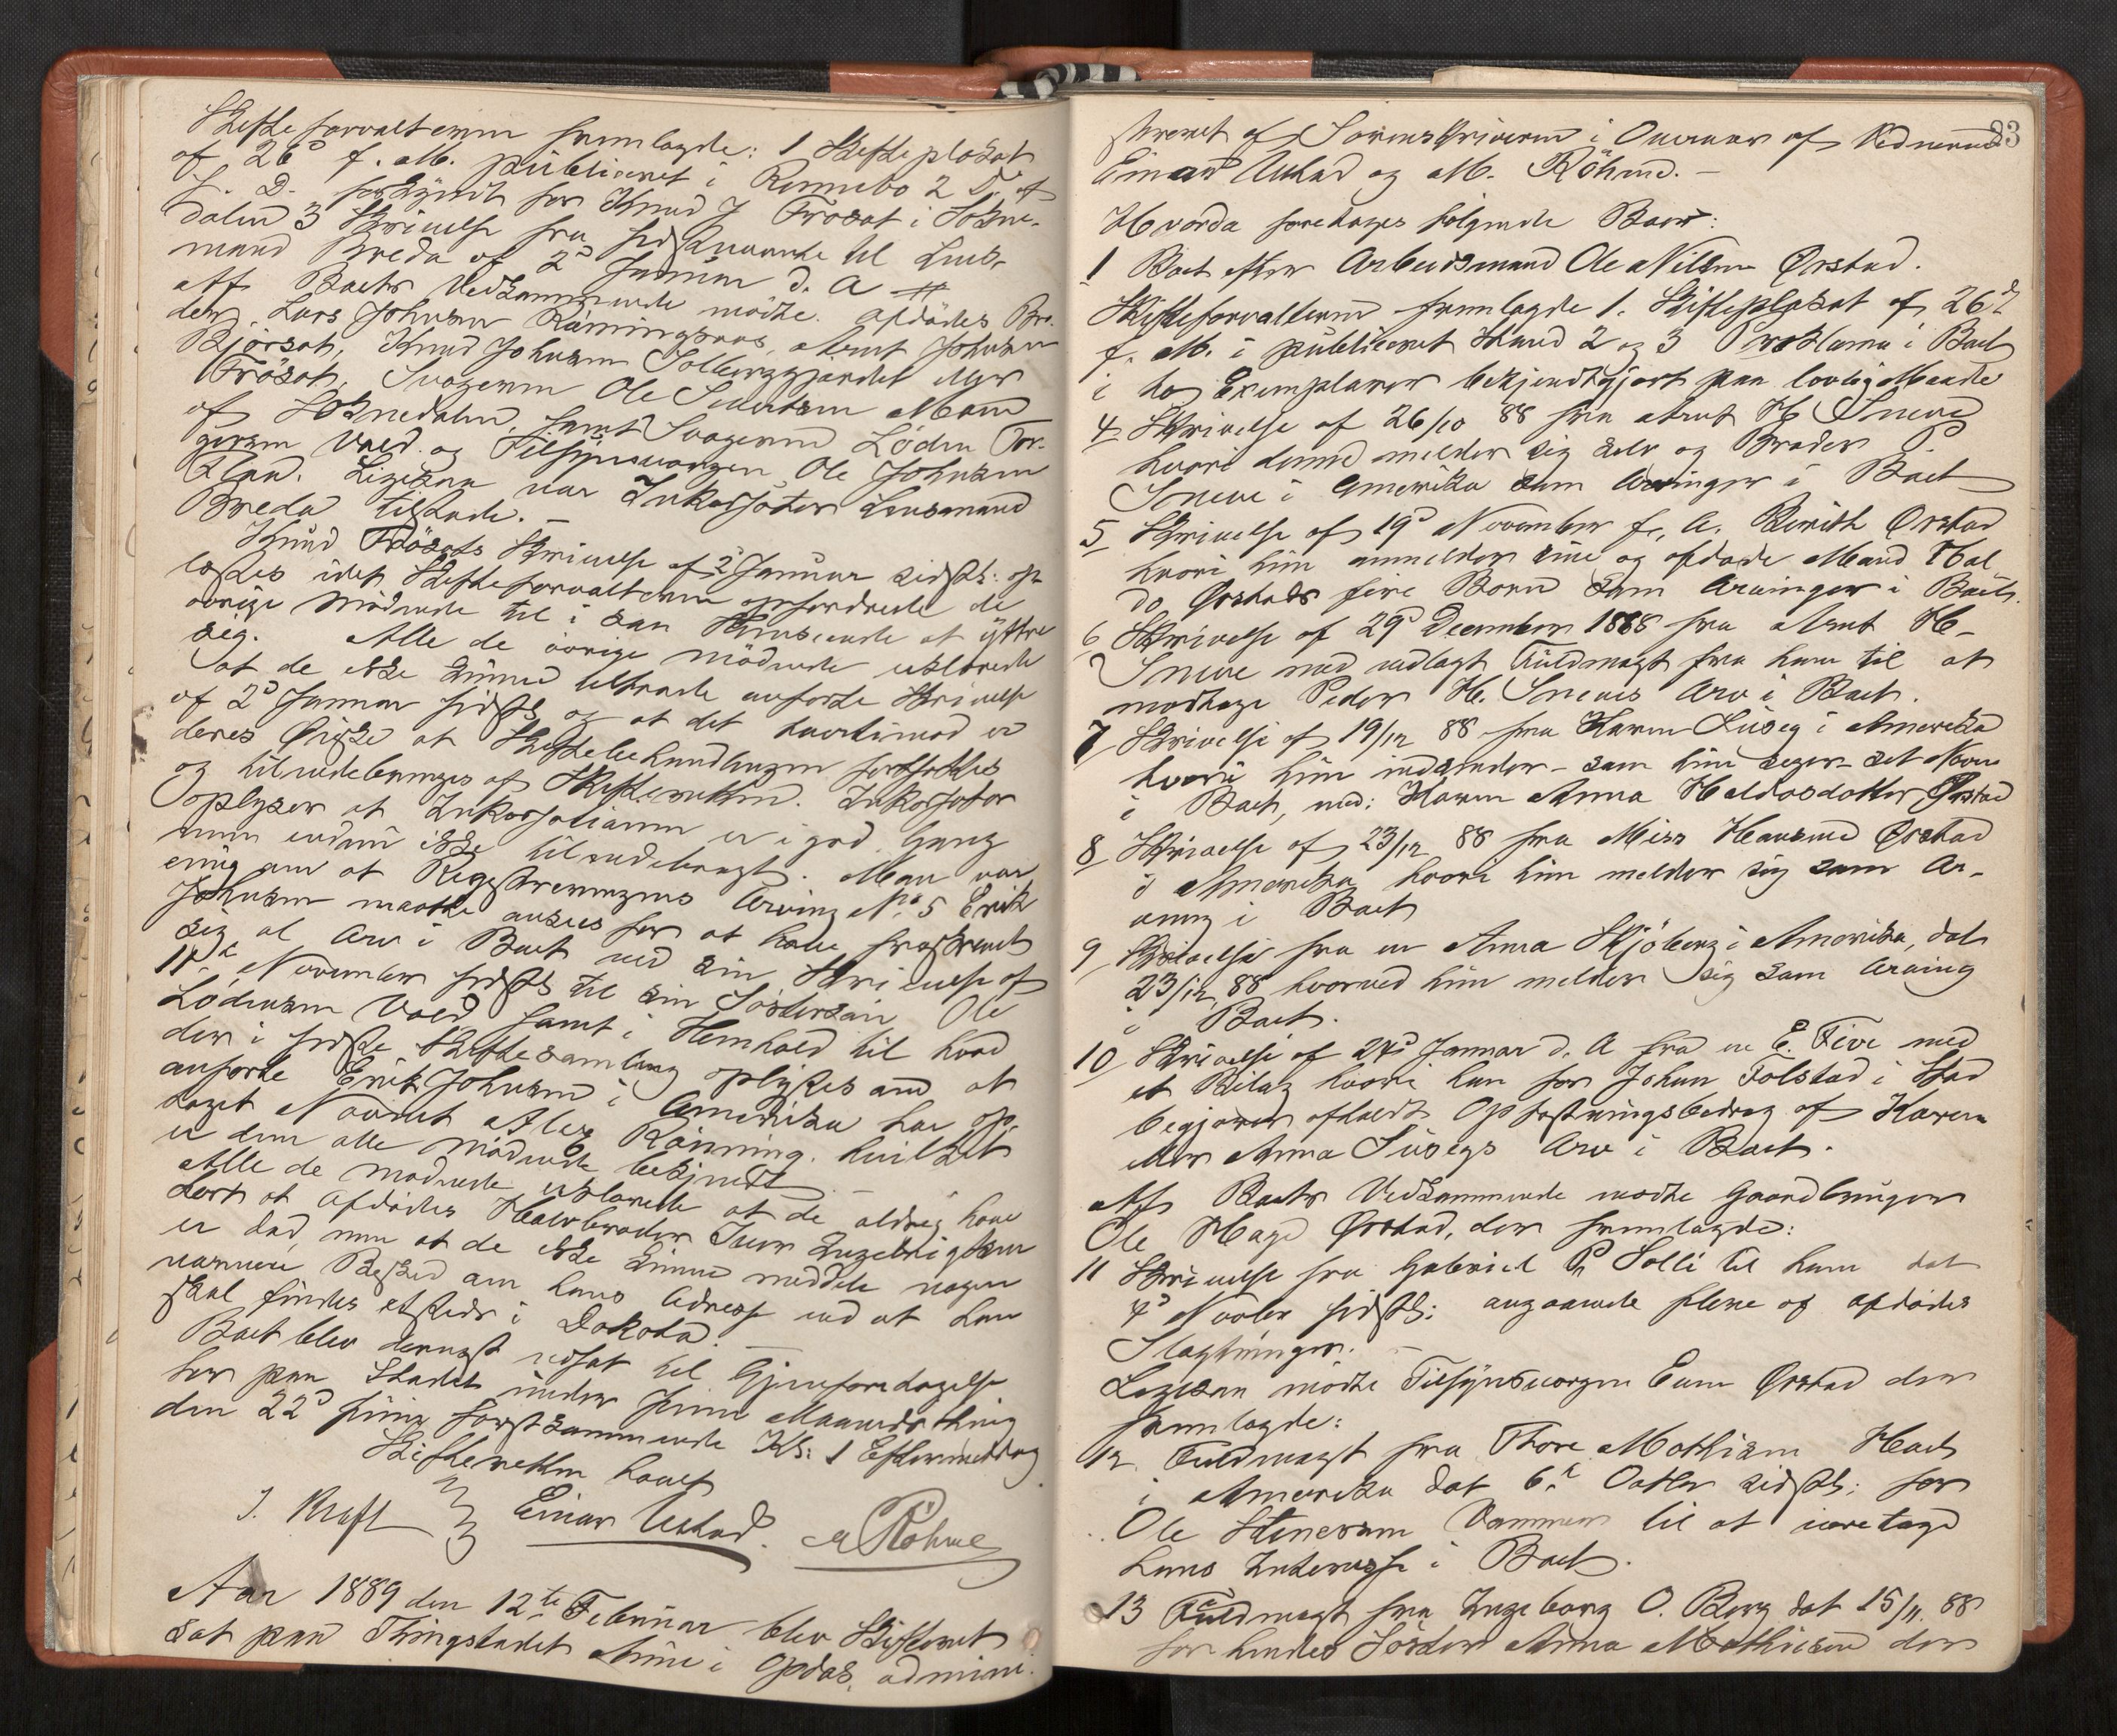 Skifteforvalteren fremlagde: 1 Skifteplakat
af 26d f. M. publiceret i Rennebo 2 D. af
S. D. forkyndt for Knud J Frøsat i Sokne-
dalen 3 Skrivelse fra sidstnævnte til Lens-
mand Breda af 2d Januar d. A
Af Boets Vedkommende mødte. Afdødes Bro-
der Lars Johnsen Rønningsaas, Arnt Johnsen
Bjørsat, Knud Johnsen Solberggjærdet eller
Frøsat, Svogeren Ole Sivertsen Moen
af Soknedalen, samt Svogeren Løden Tor-
gersen Vold og Tilsynsværgen Ole Johnsen
Ligesaa var Inkassator Lensmand
Breda tilstede. —
Knud Frøsats Skrivelse af 2d Januar sidstl: op-
læstes idet Skifteforvalteren opfordrede de
øvrige Mødende til i saa Henseende at yttre
sig. Alle de øvrige Mødende erklærede
at de ikke kunne tiltræde anførte Skrivelse
af 2d Januar sidstl og at det tvertimod er
deres Ønske at Skiftebehandlingen fortsættes
og tilendebringes af Skifteretten. Inkassator
oplyser at Inkassationen er i god Gang
men endnu ikke tilendebragt. Man var
enig om at Registreringens Arving No 5 Erik
Johnsen maatte ansees for at have fraskrevet
sig al Arv i Boet ved sin Skrivelse af
11te November sidstl til sin Søstersøn Ole
Lødensen Vold samt i Henhold til hvad
der i sidste Skiftesamling oplystes om at
anførte Erik Johnsen i Amerika har op-
taget Navnet Alex Rønning. hvilket
er dem alle Mødende bekjendt —
Alle de Mødende erklærede at de aldrig have
hørt at Afdødes Halvbroder Iver Ingebrigtsen
er død, men at de ikke kunne meddele nogen
nærmere Besked om hans Adresse end at han
skal findes etsteds i Dakota. —
Boet blev dernæst udsat til Gjenforetagelse
her paa Stedet under Juni Maanedsthing
den 22d Juni førstkommende Kl: 1 Eftermiddag
Skifteretten hævet
J. Kraft Einar Ustad. M Röhme
Aar 1889 den 12te Februar blev Skifteret
sat paa Thingstedet Aune i Opdal, admini-
83
streret af Sorenskriveren i Overvær af Vidnerne
Einar Ustad og M. Röhme. —
Hvorda foretages følgende Boer:
1 Boet efter Arbeidsmand Ole Nilsen Ørstad.
Skifteforvalteren fremlagde 1. Skifteplakat af 26d
f. M. i publiceret Stand 2 og 3 Proklama i Boet
i to Exemplarer bekjendtgjort paa lovlig Maade
4 Skrivelse af 26/10 88 fra Arnt H Sneve
hvori denne melder sig selv og Broder P.
Sneve i Amerika som Arvinger i Boet
5 Skrivelse af 19d November f. A. Berith Ørstad
hvori hun anmelder sine og afdøde Mand Hal
do Ørstads fire Børn som Arvinger i Boet.
6 Skrivelse af 29d December 1888 fra Arnt H-
Sneve med vedlagt Fuldmagt fra ham til at
modtage Peder H. Sneves Arv i Boet.
7 Skrivelse af 19/12 88 fra Karen Suseg i Amerika
hvori hun indsender – som hun siger – sit Navn
i Boet, med: Karen Anna Haldosdotter Ørstad
8 Skrivelse af 23/12 88 fra Miss Hansine Ørstad
i Amerika hvori hun melder sig som Ar-
ving i Boet
9 Skrivelse fra en Anna Skjöberg i Amerika, dat
23/12 88 hvorved hun melder sig som Arving
i Boet.
10 Skrivelse af 24d Januar d. A fra en E. Five med
et Bilag hvori han for Johan Tolstad i Stod
begjærer afholdt Opfostringsbidrag af Karen
eller Anna Susegs Arv i Boet.
Af Boets Vedkommende mødte Gaardbruger
Ole Hage Ørstad, der fremlagde:
11 Skrivelse fra Gabriel P. Solli til ham dat
4d Novbr sidstl: angaaende flere af Afdødes
Slægtninger. —
Ligesaa mødte Tilsynsværgen Even Ørstad der
fremlagde:
12 Fuldmagt fra Thore Mathisen Hael
i Amerika dat 6te Octbr sidstl: for
Ole Stenersen Vammen til at ivaretage
hans Interesse i Boet.
13 Fuldmagt fra Ingeborg O. Berg dat 15/11. 88
for hendes Søster Anna Mathisen der